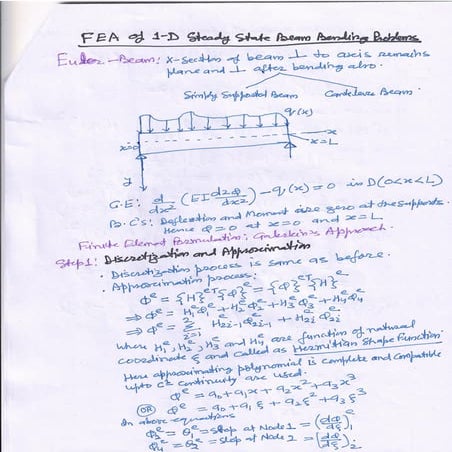 FEA of 1-D Steady State Beam Bending Problems
Euler-Beam: X-section of beam ⊥ to axis remains
plane and ⊥ after bending also.
Simply Supported Beam Cantilever Beam
q(x)
x=0 x
x=L
y
G.E: d/dx² (EI d²Φ/dx²) - q(x) = 0 in D(0<x<L)
B.C's: Deflection and Moment are zero at the supports.
Hence Φ=0 at x=0 and x=L
Finite Element Formulation: Galerkin's Approach.
Step 1: Discretization and Approximation
• Discretization process is same as before.
• Approximation process:
Φᵉ = {H}ᵉᵀ{Φ}ᵉ = {Φ}ᵉᵀ{H}ᵉ
⇒ Φᵉ = H₁ᵉΦ₁ᵉ + H₂ᵉΦ₂ᵉ + H₃ᵉΦ₃ᵉ + H₄ᵉΦ₄ᵉ
⇒ Φᵉ = Σ H₂ᵢ₋₁Φ₂ᵢ₋₁ + H₂ᵢΦ₂ᵢ
where H₁ᵉ, H₂ᵉ, H₃ᵉ and H₄ᵉ are function of natural
coordinate ξ and called as Hermitian Shape Function
Here approximating polynomial is complete and compatible
upto continuity are used.
Φᵉ = a₀+a₁x+a₂x²+a₃x³
OR Φᵉ = a₀+a₁ξ+a₂ξ²+a₃ξ³
In above equations
Φ₂ᵉ = θ₁ᵉ = slop at Node 1 = (dΦ/dξ)₁ᵉ
Φ₄ᵉ = θ₂ᵉ = slop at Node 2 = (dΦ/dξ)₂ᵉ